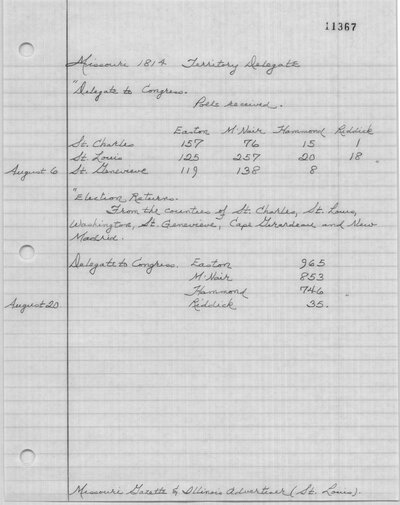 11367
Missouri 1814 Territory Delegate
"Delegate to Congress.
Polls received.
Easton M'Nair Hammond Riddick
St. Charles 157 76 15 1
St. Louis 125 257 20 18
August 6 St. Genevieve 119 138 8
"Election Returns.
From the counties of St. Charles, St. Louis,
Washington, St. Genevieve, Cape Girardeau and New
Madrid.
Delegate to Congress. Easton 965
M'Nair 853
Hammond 746
August 20 Riddick 35.
Missouri Gazette & Illinois Advertiser (St. Louis).